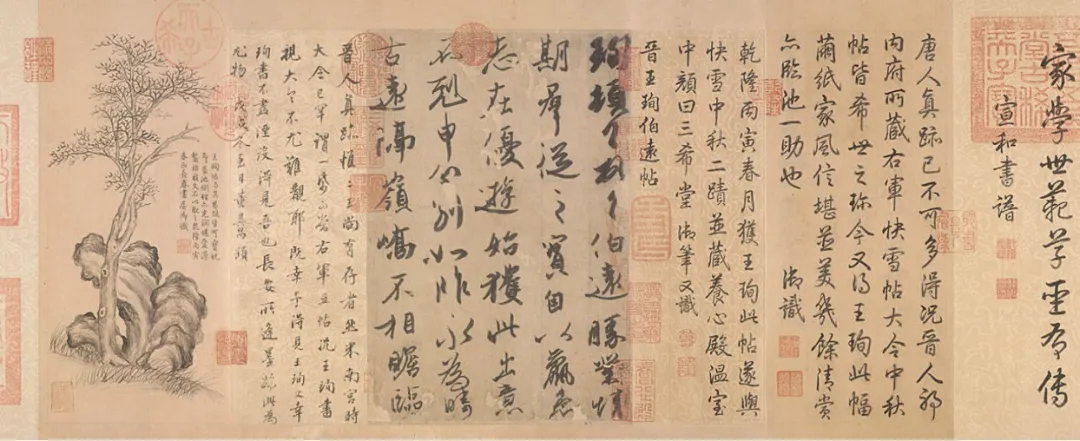 家學世範草聖有傳
宣和書譜
唐人真跡已不可多得況晉人耶
内府所藏右軍快雪帖大令中秋
帖皆希世之珍今又得王珣此幅
繭紙家風信堪並美幾餘清賞
亦臨池一助也 御識
乾隆丙寅春月獲王珣此帖遂與
快雪中秋二蹟並藏養心殿溫室
中顏曰三希堂御筆又識
晉王珣伯遠帖
珣頓首頓首伯遠勝業情
期羣從之寶自以羸患
志在優遊始獲此出意
不剋申分別如昨永為疇
古遠隔嶺嶠不相瞻臨
晉人真跡惟二王尚有存者然米南宮時
大令已罕謂一紙可當右軍五帖況王珣書
視大令不尤難覯耶既幸予得見王珣又幸
珣書不盡湮沒得見吾也長安所逢墨跡此為
尤物 戊戌冬至日董其昌題
王珣帖与其昌跋皆可寶玩
即裝池側理亦光潤堪愛漫
製枯枝文石以配之乾隆丙寅
春正長春書屋御識